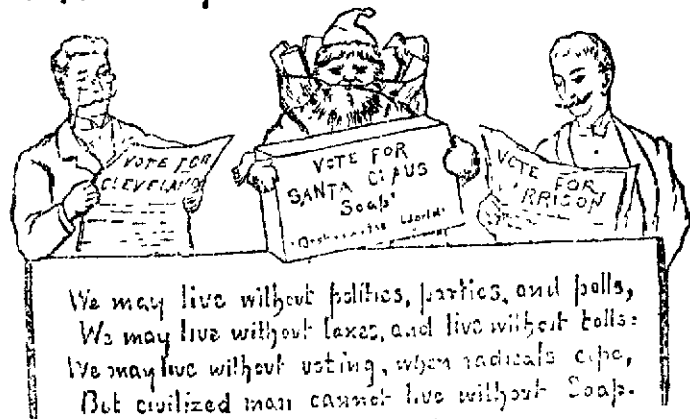 VOTE FOR
CLEVELAND
VOTE FOR
SANTA CLAUS
Soap
World
VOTE FOR
HARRISON
We may live without politics, parties, and polls,
We may live without taxes, and live without tolls:
We may live without voting, when radicals
But civilized man cannot live without Soap.